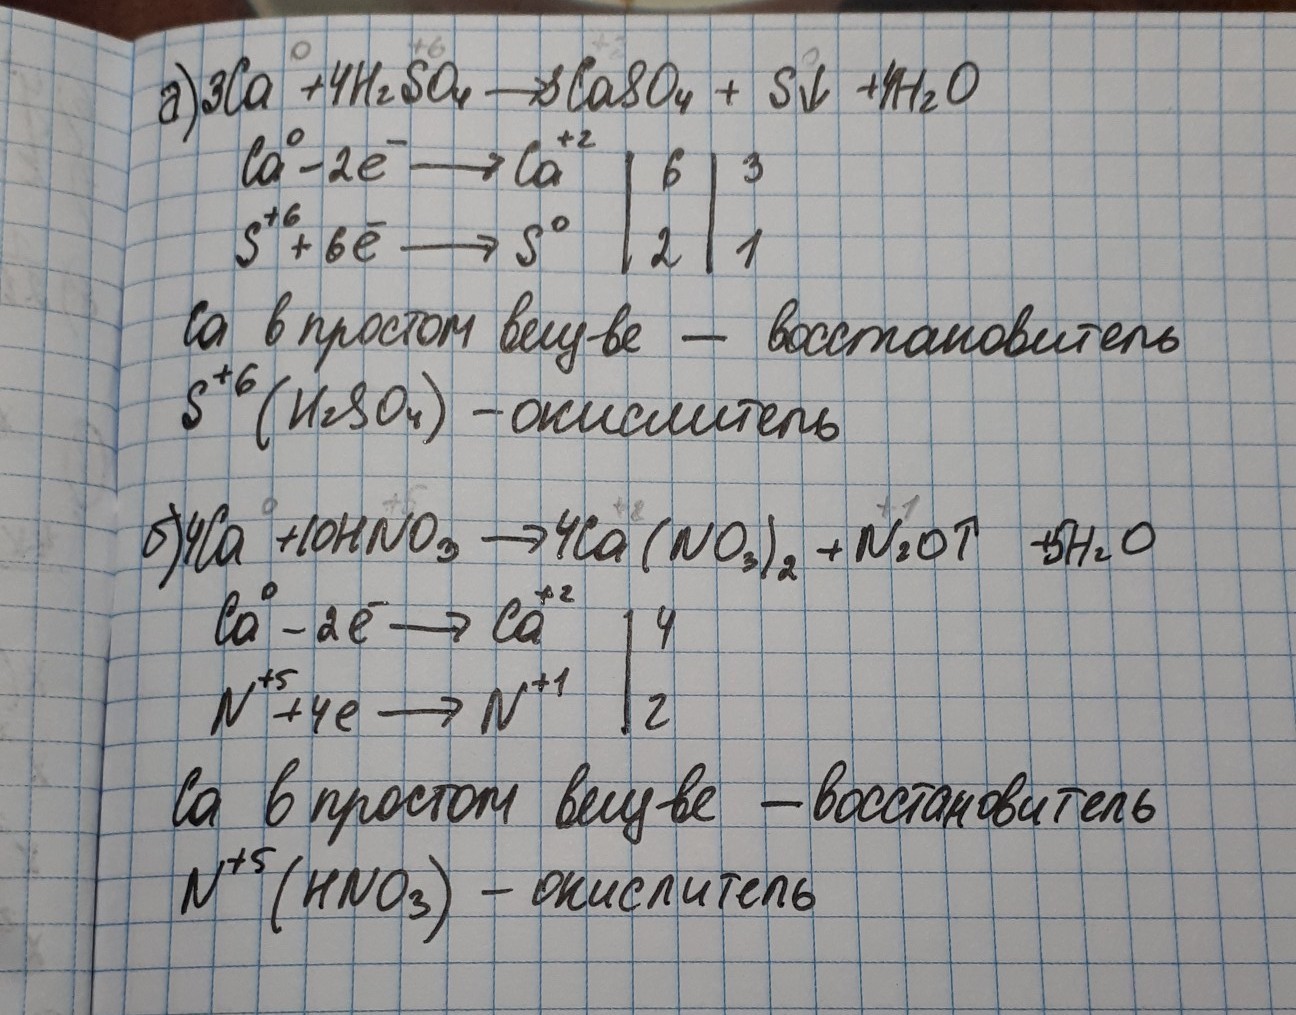 а) 3Ca⁰ + 4H₂S⁺⁶O₄ → 3Ca⁺²SO₄ + S⁰↓ + 4H₂O
Ca⁰ - 2e⁻ → Ca⁺² | 6 | 3
S⁺⁶ + 6e⁻ → S⁰ | 2 | 1
Ca в простом вещ-ве — восстановитель
S⁺⁶ (H₂SO₄) - окислитель
б) 4Ca⁰ + 10HN⁺⁵O₃ → 4Ca⁺²(NO₃)₂ + N₂⁺¹O↑ + 5H₂O
Ca⁰ - 2e⁻ → Ca⁺² | 4
N⁺⁵ + 4e → N⁺¹ | 2
Ca в простом вещ-ве — восстановитель
N⁺⁵ (HNO₃) - окислитель